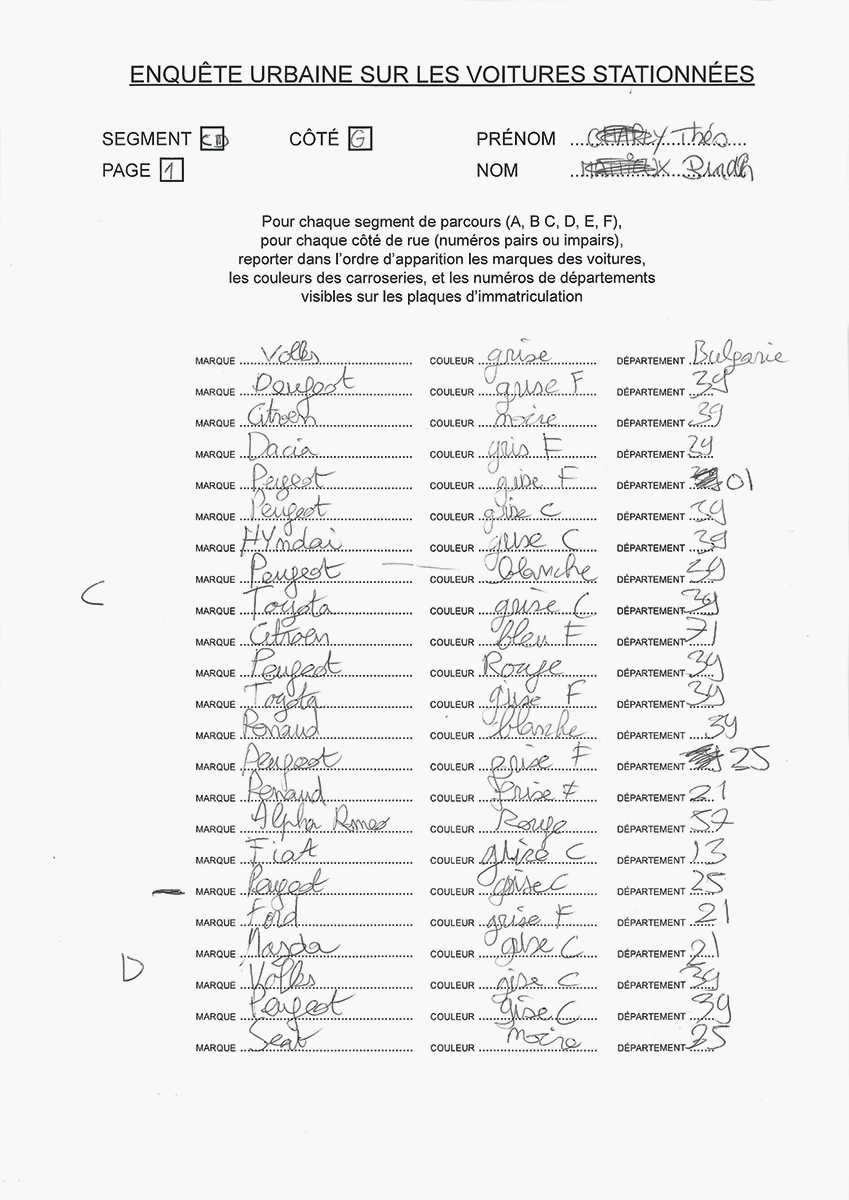 ENQUÊTE URBAINE SUR LES VOITURES STATIONNÉES
SEGMENT CD CÔTÉ G PRÉNOM Théo
PAGE 1 NOM
Pour chaque segment de parcours (A, B C, D, E, F),
pour chaque côté de rue (numéros pairs ou impairs),
reporter dans l'ordre d'apparition les marques des voitures,
les couleurs des carroseries, et les numéros de départements
visibles sur les plaques d'immatriculation
MARQUE Volks COULEUR grise DÉPARTEMENT Bulgarie
MARQUE Peugeot COULEUR grise F DÉPARTEMENT 39
MARQUE Citroen COULEUR noire DÉPARTEMENT 39
MARQUE Dacia COULEUR gris F DÉPARTEMENT 39
MARQUE Peugeot COULEUR grise F DÉPARTEMENT 01
MARQUE Peugeot COULEUR grise C DÉPARTEMENT 39
MARQUE HYndai COULEUR grise C DÉPARTEMENT 39
MARQUE Peugeot COULEUR blanche DÉPARTEMENT 39
C
MARQUE Toyota COULEUR grise C DÉPARTEMENT 39
MARQUE Citroen COULEUR bleu F DÉPARTEMENT 71
MARQUE Peugeot COULEUR Rouge DÉPARTEMENT 39
MARQUE Toyota COULEUR grise F DÉPARTEMENT 39
MARQUE Renaud COULEUR blanche DÉPARTEMENT 39
MARQUE Peugeot COULEUR grise F DÉPARTEMENT 25
MARQUE Renaud COULEUR grise F DÉPARTEMENT 21
MARQUE Alpha Romeo COULEUR Rouge DÉPARTEMENT 57
MARQUE FiaT COULEUR grise C DÉPARTEMENT 13
MARQUE Peugeot COULEUR grise C DÉPARTEMENT 25
MARQUE Ford COULEUR grise F DÉPARTEMENT 21
MARQUE Masda COULEUR gise C DÉPARTEMENT 21
D
MARQUE Volks COULEUR gise C DÉPARTEMENT 39
MARQUE Peugeot COULEUR gise C DÉPARTEMENT 39
MARQUE Seat COULEUR noire DÉPARTEMENT 25